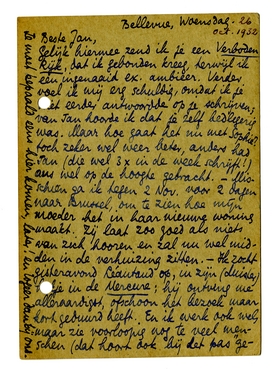 Bellevue, Woensdag. 26
oct. 1932
Beste Jan,
Gelijk hiermee zend ik je een Verboden
Rijk, dat ik gebonden kreeg, terwijl ik
een ingenaaid ex. ambieer. Verder
voel ik mij erg schuldig, omdat ik je
niet eerder antwoordde op je schrijven;
van Jan hoorde ik dat je zelf bedlegerig
was. Maar hoe gaat het nu met Sophia?
toch zeker wel weer beter, anders had
Jan (die wel 3x in de week schrijft!)
ons wel op de hoogte gebracht. – Mis-
schien ga ik tegen 2 Nov. voor 2 dagen
naar Brussel, om te zien hoe mijn
moeder het in haar nieuwe woning
maakt. Zij laat zoo goed als niets
van zich hooren en zal nu wel mid-
den in de verhuizing zitten. – Ik zocht
gisteravond Léautaud op, in zijn (duister)
in de Mercure; hij ontving me
alleraardigst, ofschoon het bezoek maar
kort geduurd heeft. En ik werk ook wel,
maar zie voorloopig nog te veel men-
schen (dat hoort ook bij het pas "ge-